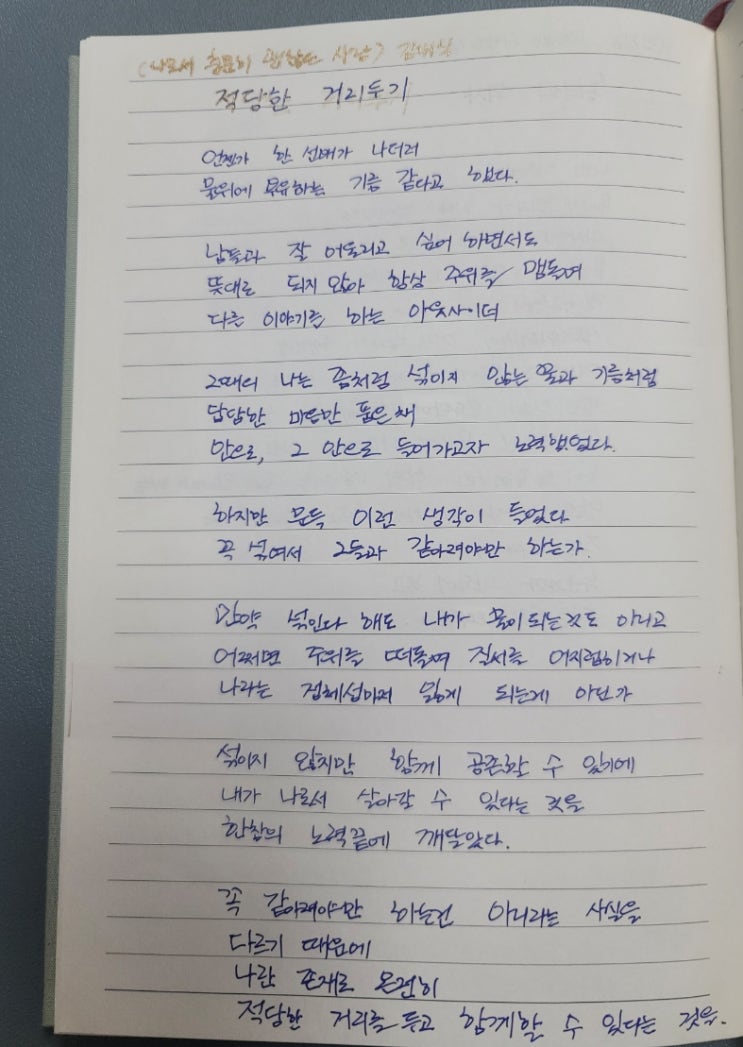 <나로서 충분히 괜찮은 사람> 김재식
적당한 거리두기
언젠가 한 선배가 나더러
물위에 부유하는 기름 같다고 했다.
남들과 잘 어울리고 싶어 하면서도
뜻대로 되지 않아 항상 주위를 맴돌며
다른 이야기를 하는 아웃사이더
그때의 나는 좀처럼 섞이지 않는 물과 기름처럼
답답한 마음만 품은채
안으로, 그 안으로 들어가고자 노력했었다.
하지만 문득 이런 생각이 들었다
꼭 섞여서 그들과 같아져야만 하는가.
만약 섞인다 해도 내가 물이 되는것도 아니고
어쩌면 주위를 떠돌며 질서를 어지럽히거나
나라는 정체성마저 잃게 되는게 아닌가
섞이지 않지만 함께 공존할 수 있기에
내가 나로서 살아갈 수 있다는 것을
한참의 노력끝에 깨달았다.
꼭 같아져야만 하는건 아니라는 사실을
다르기 때문에
나란 존재로 온전히
적당한 거리를 두고 함께할 수 있다는 것을.